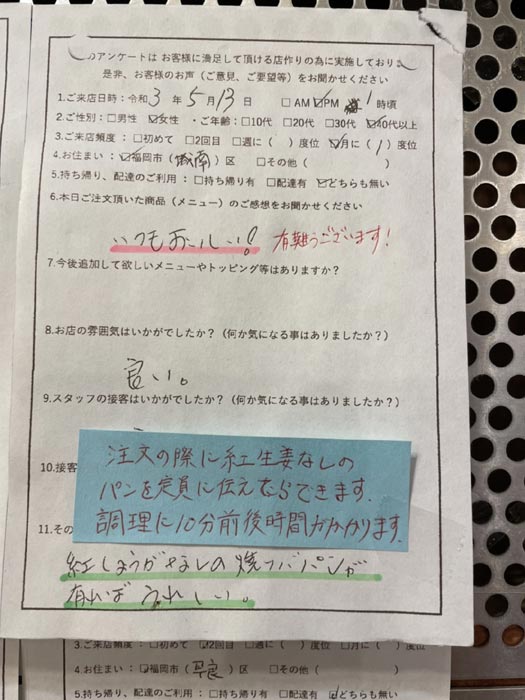 のアンケートは お客様に満足して頂ける店作りの為に実施しており
是非、お客様のお声（ご意見、ご要望等）をお聞かせください
1.ご来店日時：令和 3 年 5 月 13 日 □ AM ☑PM 1 時頃
2.ご性別：□男性 ☑女性 ・ご年齢：□10代 □20代 □30代 ☑40代以上
3.ご来店頻度：□初めて □2回目 □週に（ ）度位 ☑月に（ 1 ）度位
4.お住まい：☑福岡市（城南）区 □その他（ ）
5.持ち帰り、配達のご利用：□持ち帰り有 □配達有 ☑どちらも無い
6.本日ご注文頂いた商品（メニュー）のご感想をお聞かせください
いつもおいしい！ 有難うございます！
7.今後追加して欲しいメニューやトッピング等はありますか？
8.お店の雰囲気はいかがでしたか？（何か気になる事はありましたか？）
良い。
9.スタッフの接客はいかがでしたか？（何か気になる事はありましたか？）
10.接客
注文の際に紅生姜なしの
パンを定員に伝えたらできます.
調理に10分前後時間がかかります.
11.その
紅しょうがなしの焼ソバパンが
有ればうれしい。
3.ご来店頻度：□初めて ☑2回目 □週に（ ）度位 □月に（ ）度位
4.お住まい：☑福岡市（早良）区 □その他（ ）
5.持ち帰り、配達のご利用：□持ち帰り有 □配達有 ☑どちらも無い